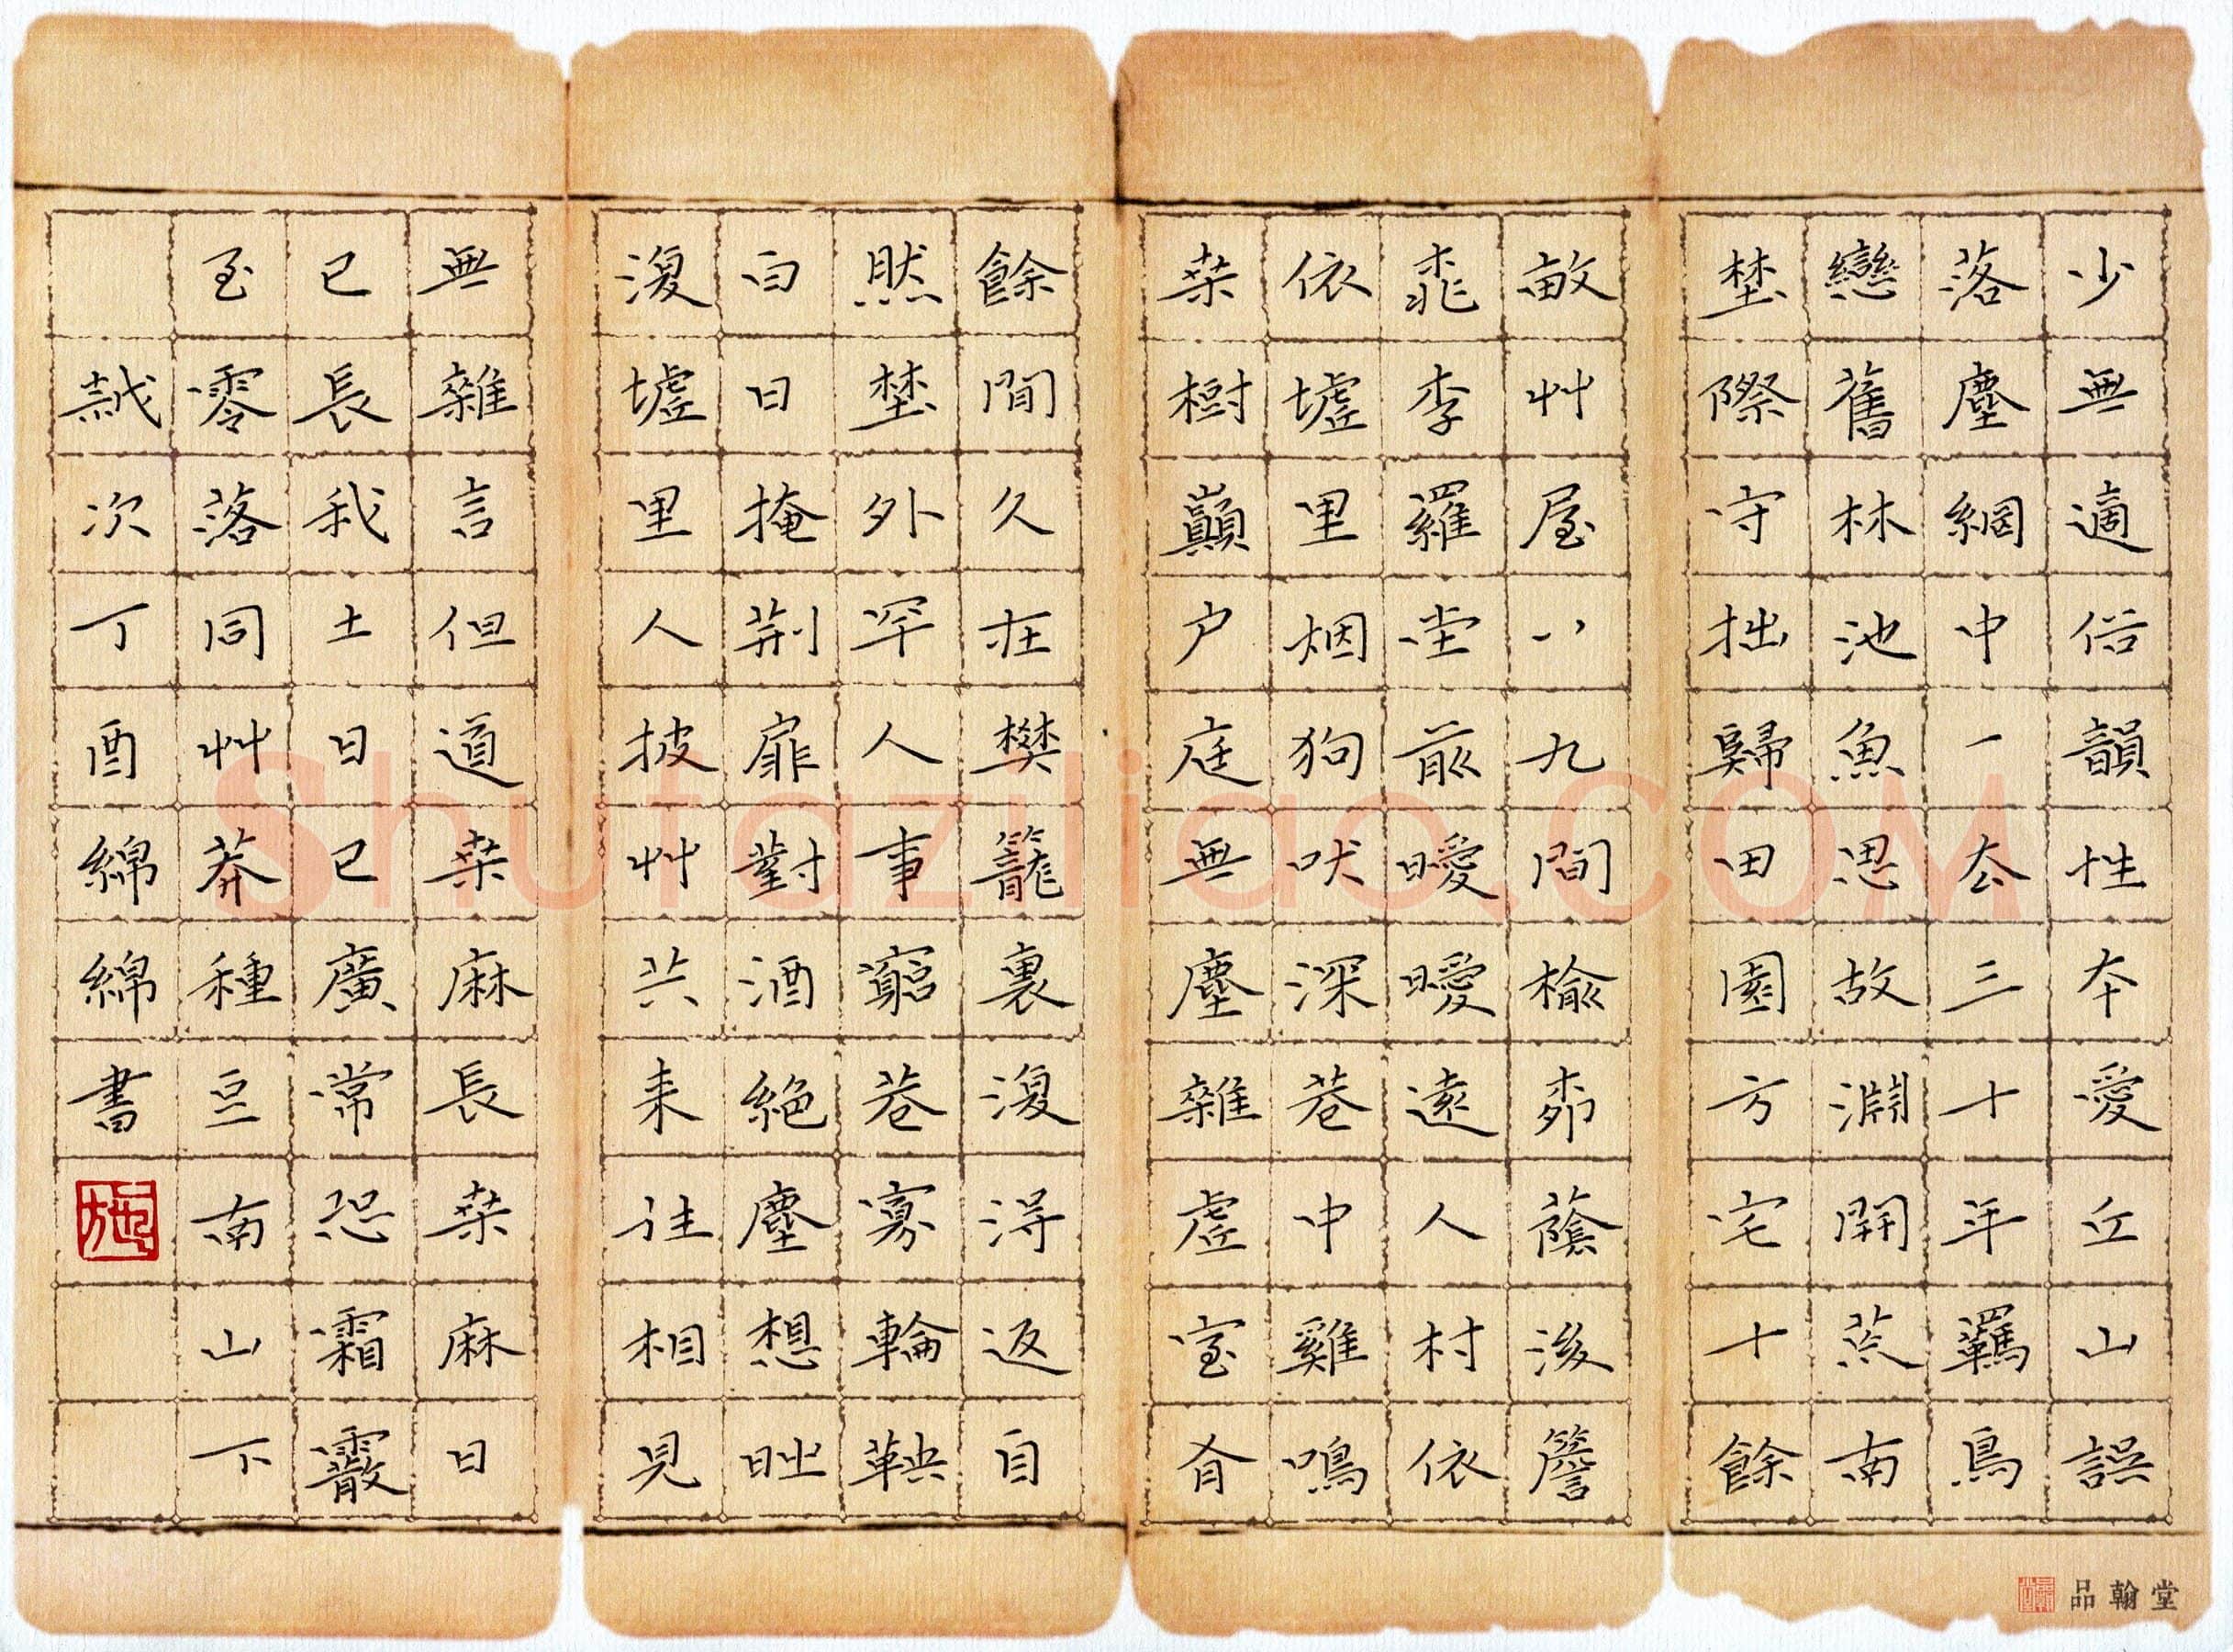 少無適俗韻性本愛丘山誤
落塵網中一去三十年羈鳥
戀舊林池魚思故淵開荒南
埜際守拙歸田園方宅十餘
畝艸屋八九間榆柳蔭後簷
桃李羅堂前曖曖遠人村依
依墟里烟狗吠深巷中雞鳴
桑樹巔户庭無塵雜虛室有
餘閒久在樊籠裏復得返自
然埜外罕人事窮巷寡輪鞅
白日掩荊扉對酒絕塵想時
復墟里人披艸共來往相見
無雜言但道桑麻長桑麻日
已長我土日已廣常恐霜霰
至零落同艸莽種豆南山下
歲次丁酉綿綿書
施
Shufaziliao.COM
品翰堂